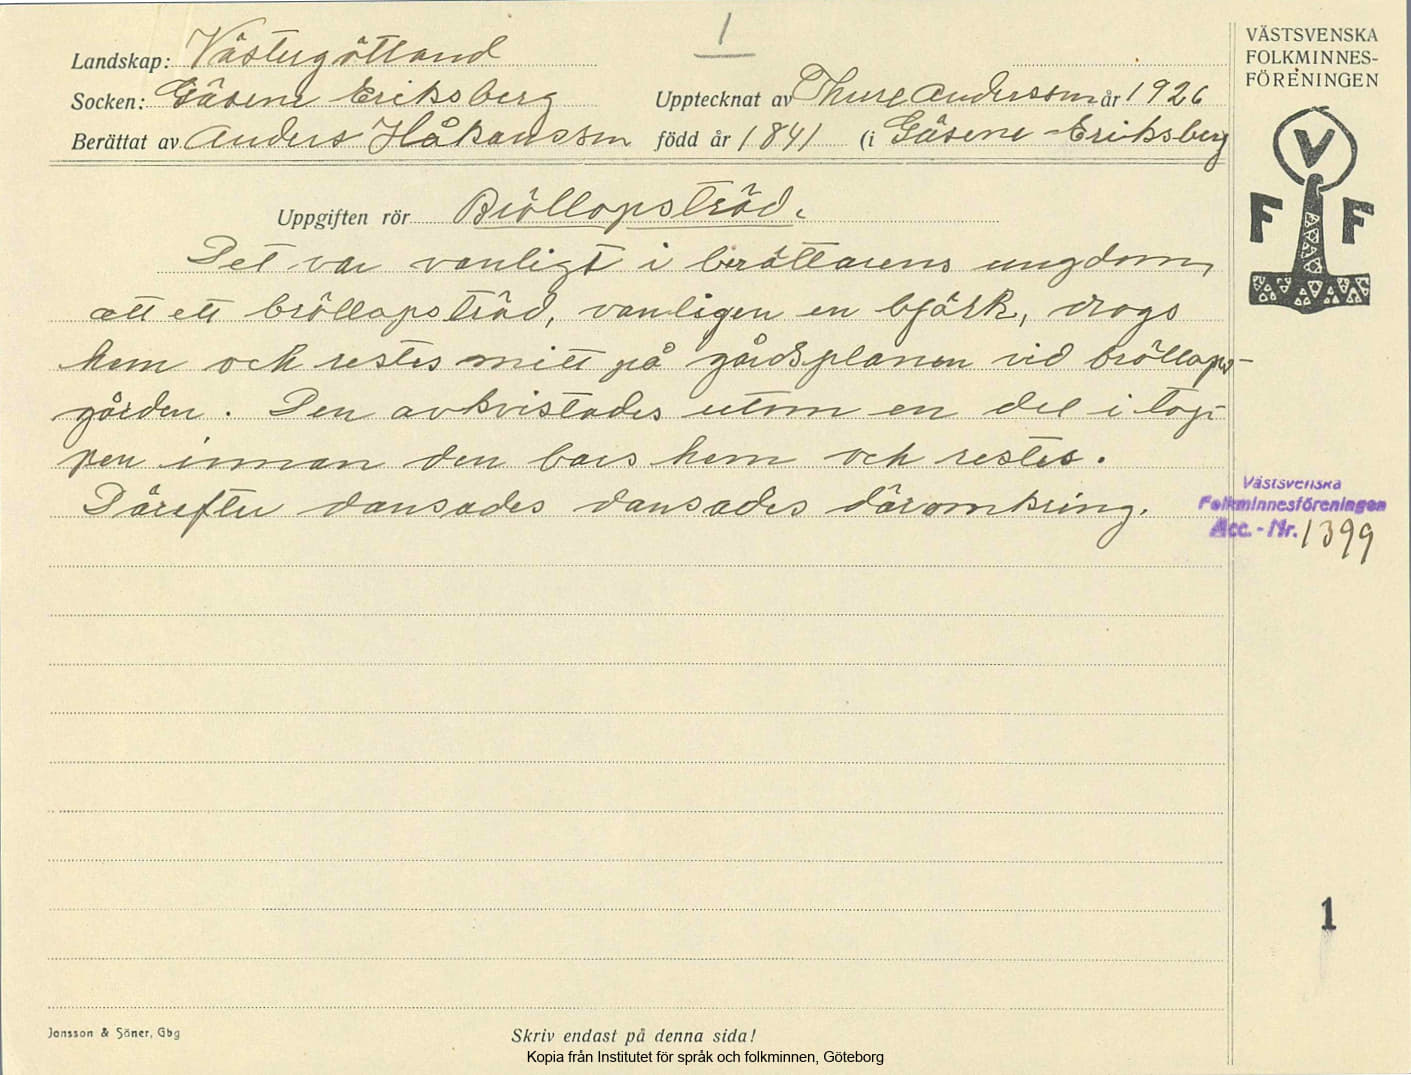 1
Landskap: Västergötland
Socken: Gäsene Eriksberg
Upptecknat av Thure Andersson år 1926
Berättat av Anders Håkansson född år 1841 (i Gäsene Eriksberg
VÄSTSVENSKA
FOLKMINNES-
FÖRENINGEN
V
F F
Uppgiften rör Bröllopsträd.
Det var vanligt i berättarens ungdom,
att ett bröllopsträd, vanligen en björk, drogs
hem och restes mitt på gårdsplanen vid bröllops-
gården. Den avkvistades utom en del i top-
pen innan den bars hem och restes.
Därefter dansades dansades däromkring.
Västsvenska
Folkminnesföreningen
Acc. - Nr. 1399
1
Jonsson & Söner, Gbg
Skriv endast på denna sida!
Kopia från Institutet för språk och folkminnen, Göteborg